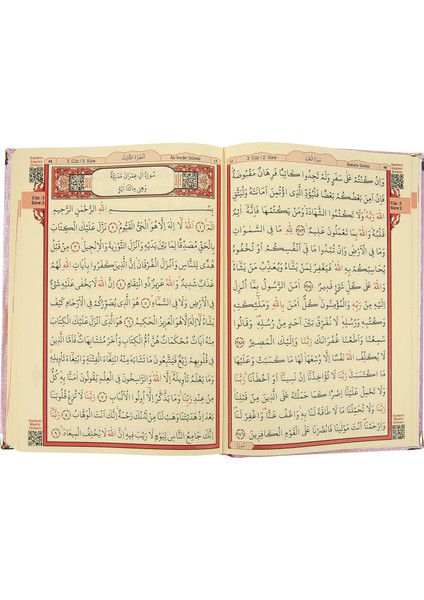 سورة البقرة
3. Cüz / 2. Sûre
Bakara Sûresi
Cüz :3
Sûre 2
وَاِنْ كُنْتُمْ عَلٰى سَفَرٍ وَلَمْ تَجِدُوا كَاتِبًا فَرِهَانٌ مَقْبُوضَةٌ
فَاِنْ اَمِنَ بَعْضُكُمْ بَعْضًا فَلْيُؤَدِّ الَّذِى اؤْتُمِنَ اَمَانَتَهُ وَلْيَتَّقِ
اللّٰهَ رَبَّهُ وَلَا تَكْتُمُوا الشَّهَادَةَ وَمَنْ يَكْتُمْهَا فَاِنَّهُ اٰثِمٌ
قَلْبُهُ وَاللّٰهُ بِمَا تَعْمَلُونَ عَلِيمٌ لِلّٰهِ مَا فِى السَّمٰوَاتِ
وَمَا فِى الْاَرْضِ وَاِنْ تُبْدُوا مَا فِى اَنْفُسِكُمْ اَوْ تُخْفُوهُ
يُحَاسِبْكُمْ بِهِ اللّٰهُ فَيَغْفِرُ لِمَنْ يَشَاءُ وَيُعَذِّبُ مَنْ يَشَاءُ
وَاللّٰهُ عَلٰى كُلِّ شَىْءٍ قَدِيرٌ اٰمَنَ الرَّسُولُ بِمَا اُنْزِلَ
اِلَيْهِ مِنْ رَبِّهِ وَالْمُؤْمِنُونَ كُلٌّ اٰمَنَ بِاللّٰهِ وَمَلٰئِكَتِهِ
وَكُتُبِهِ وَرُسُلِهِ لَا نُفَرِّقُ بَيْنَ اَحَدٍ مِنْ رُسُلِهِ وَقَالُوا
سَمِعْنَا وَاَطَعْنَا غُفْرَانَكَ رَبَّنَا وَاِلَيْكَ الْمَصِيرُ
لَا يُكَلِّفُ اللّٰهُ نَفْسًا اِلَّا وُسْعَهَا لَهَا مَا كَسَبَتْ وَعَلَيْهَا
مَا اكْتَسَبَتْ رَبَّنَا لَا تُؤَاخِذْنَا اِنْ نَسِينَا اَوْ اَخْطَاْنَا رَبَّنَا
وَلَا تَحْمِلْ عَلَيْنَا اِصْرًا كَمَا حَمَلْتَهُ عَلَى الَّذِينَ مِنْ قَبْلِنَا
رَبَّنَا وَلَا تُحَمِّلْنَا مَا لَا طَاقَةَ لَنَا بِهِ وَاعْفُ عَنَّا وَاغْفِرْ لَنَا
وَارْحَمْنَا اَنْتَ مَوْلٰينَا فَانْصُرْنَا عَلَى الْقَوْمِ الْكَافِرِينَ
3. Cüz / 3. Sûre
Âl-i İmrân Sûresi
Cüz :3
Sûre 3
سُورَةُ اٰلِ عِمْرَانَ مَدَنِيَّةٌ
وَهِىَ مِائَتَا اٰيَةٍ
بِسْمِ اللّٰهِ الرَّحْمٰنِ الرَّحِيمِ
الٓمٓ اَللّٰهُ لَا اِلٰهَ اِلَّا هُوَ الْحَىُّ الْقَيُّومُ نَزَّلَ عَلَيْكَ الْكِتَابَ
بِالْحَقِّ مُصَدِّقًا لِمَا بَيْنَ يَدَيْهِ وَاَنْزَلَ التَّوْرٰيةَ وَالْاِنْجِيلَ مِنْ قَبْلُ
هُدًى لِلنَّاسِ وَاَنْزَلَ الْفُرْقَانَ اِنَّ الَّذِينَ كَفَرُوا بِاٰيَاتِ اللّٰهِ لَهُمْ
عَذَابٌ شَدِيدٌ وَاللّٰهُ عَزِيزٌ ذُو انْتِقَامٍ اِنَّ اللّٰهَ لَا يَخْفٰى عَلَيْهِ شَىْءٌ
فِى الْاَرْضِ وَلَا فِى السَّمَاءِ هُوَ الَّذِى يُصَوِّرُكُمْ فِى الْاَرْحَامِ كَيْفَ
يَشَاءُ لَا اِلٰهَ اِلَّا هُوَ الْعَزِيزُ الْحَكِيمُ هُوَ الَّذِى اَنْزَلَ عَلَيْكَ الْكِتَابَ
مِنْهُ اٰيَاتٌ مُحْكَمَاتٌ هُنَّ اُمُّ الْكِتَابِ وَاُخَرُ مُتَشَابِهَاتٌ فَاَمَّا الَّذِينَ
فِى قُلُوبِهِمْ زَيْغٌ فَيَتَّبِعُونَ مَا تَشَابَهَ مِنْهُ ابْتِغَاءَ الْفِتْنَةِ وَابْتِغَاءَ تَاْوِيلِهِ
وَمَا يَعْلَمُ تَاْوِيلَهُ اِلَّا اللّٰهُ وَالرَّاسِخُونَ فِى الْعِلْمِ يَقُولُونَ اٰمَنَّا بِهِ كُلٌّ
مِنْ عِنْدِ رَبِّنَا وَمَا يَذَّكَّرُ اِلَّا اُولُوا الْاَلْبَابِ رَبَّنَا لَا تُزِغْ قُلُوبَنَا
بَعْدَ اِذْ هَدَيْتَنَا وَهَبْ لَنَا مِنْ لَدُنْكَ رَحْمَةً اِنَّكَ اَنْتَ الْوَهَّابُ رَبَّنَا
اِنَّكَ جَامِعُ النَّاسِ لِيَوْمٍ لَا رَيْبَ فِيهِ اِنَّ اللّٰهَ لَا يُخْلِفُ الْمِيعَادَ